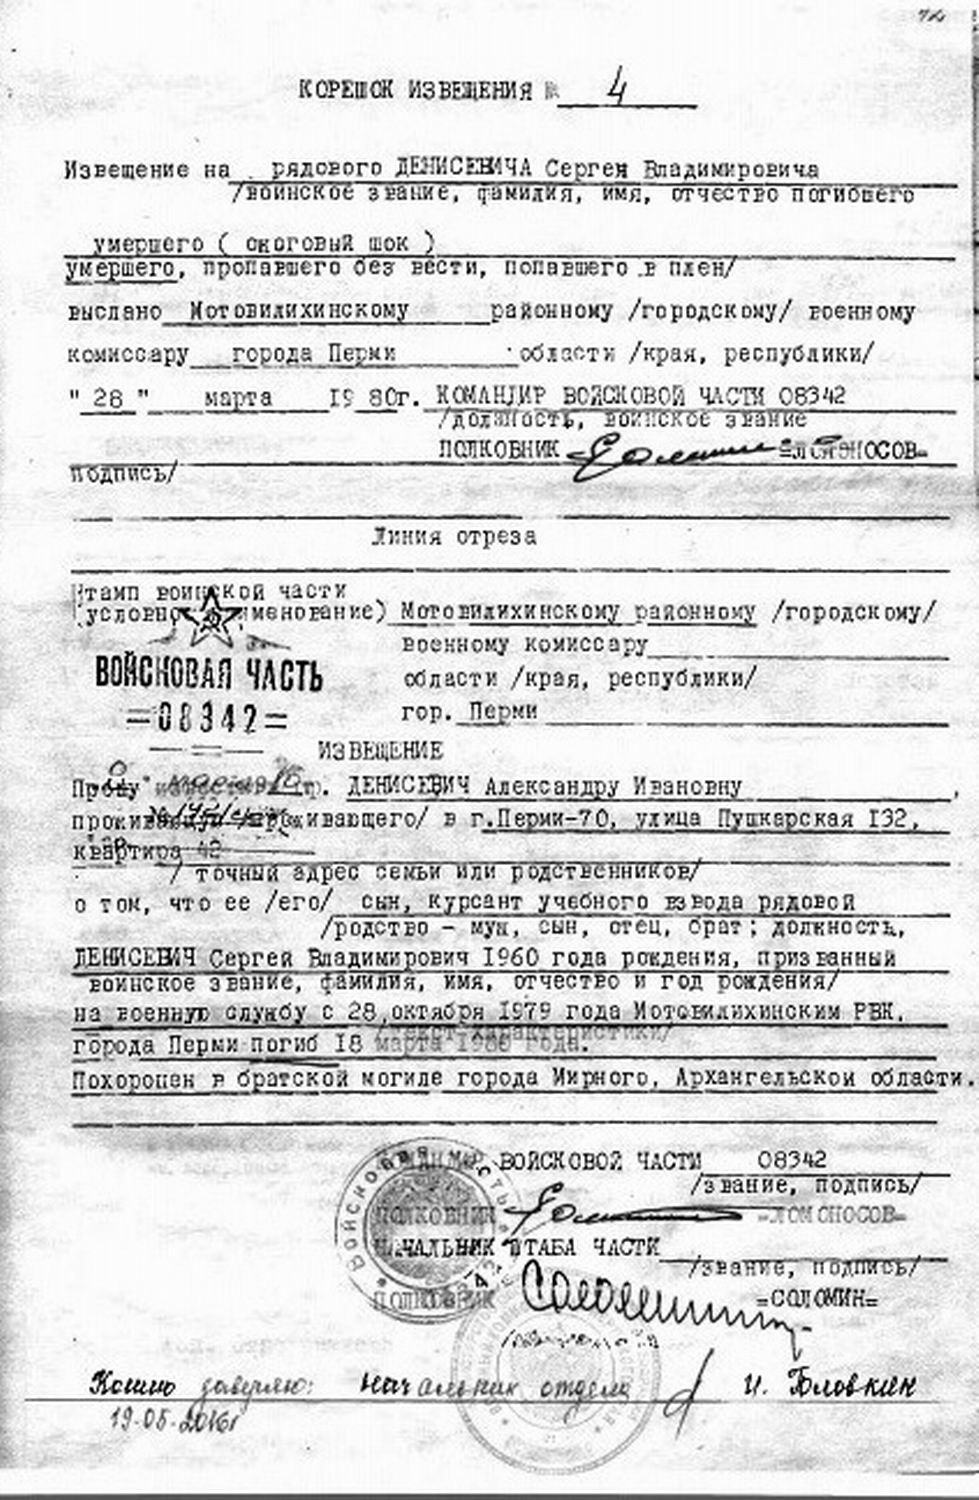 КОРЕШОК ИЗВЕЩЕНИЯ № 4
Извещение на рядового ДЕНИСЕВИЧА Сергея Владимировича
/воинское звание, фамилия, имя, отчество погибшего
умершего ( ожоговый шок )
умершего, пропавшего без вести, попавшего в плен/
выслано Мотовилихинскому районному /городскому/ военному
комиссару города Перми области /края, республики/
" 28 " марта 19 80г. КОМАНДИР ВОЙСКОВОЙ ЧАСТИ 08342
/должность, воинское звание
ПОЛКОВНИК =ЛОМОНОСОВ=
подпись/
Линия отреза
Штамп воинской части
(условное наименование) Мотовилихинскому районному /городскому/
военному комиссару
ВОЙСКОВАЯ ЧАСТЬ
области /края, республики/
=08342=
гор. Перми
ИЗВЕЩЕНИЕ
Прошу известить гр. ДЕНИСЕВИЧ Александру Ивановну
проживающую /проживающего/ в г.Перми-70, улица Пушкарская 132,
квартира 42
/ точный адрес семьи или родственников/
о том, что ее /его/ сын, курсант учебного взвода рядовой
/родство - муж, сын, отец, брат; должность,
ДЕНИСЕВИЧ Сергей Владимирович 1960 года рождения, призванный
воинское звание, фамилия, имя, отчество и год рождения/
на военную службу с 28 октября 1979 года Мотовилихинским РВК,
/текст характеристики/
города Перми погиб 18 марта 1980 года.
Похоронен в братской могиле города Мирного, Архангельской области.
КОМАНДИР ВОЙСКОВОЙ ЧАСТИ 08342
/звание, подпись/
ПОЛКОВНИК =ЛОМОНОСОВ=
НАЧАЛЬНИК ШТАБА ЧАСТИ
/звание, подпись/
ПОЛКОВНИК =СОЛОМИН=
Копию заверяю: начальник отдела И. Бловкин
19-05-2016г